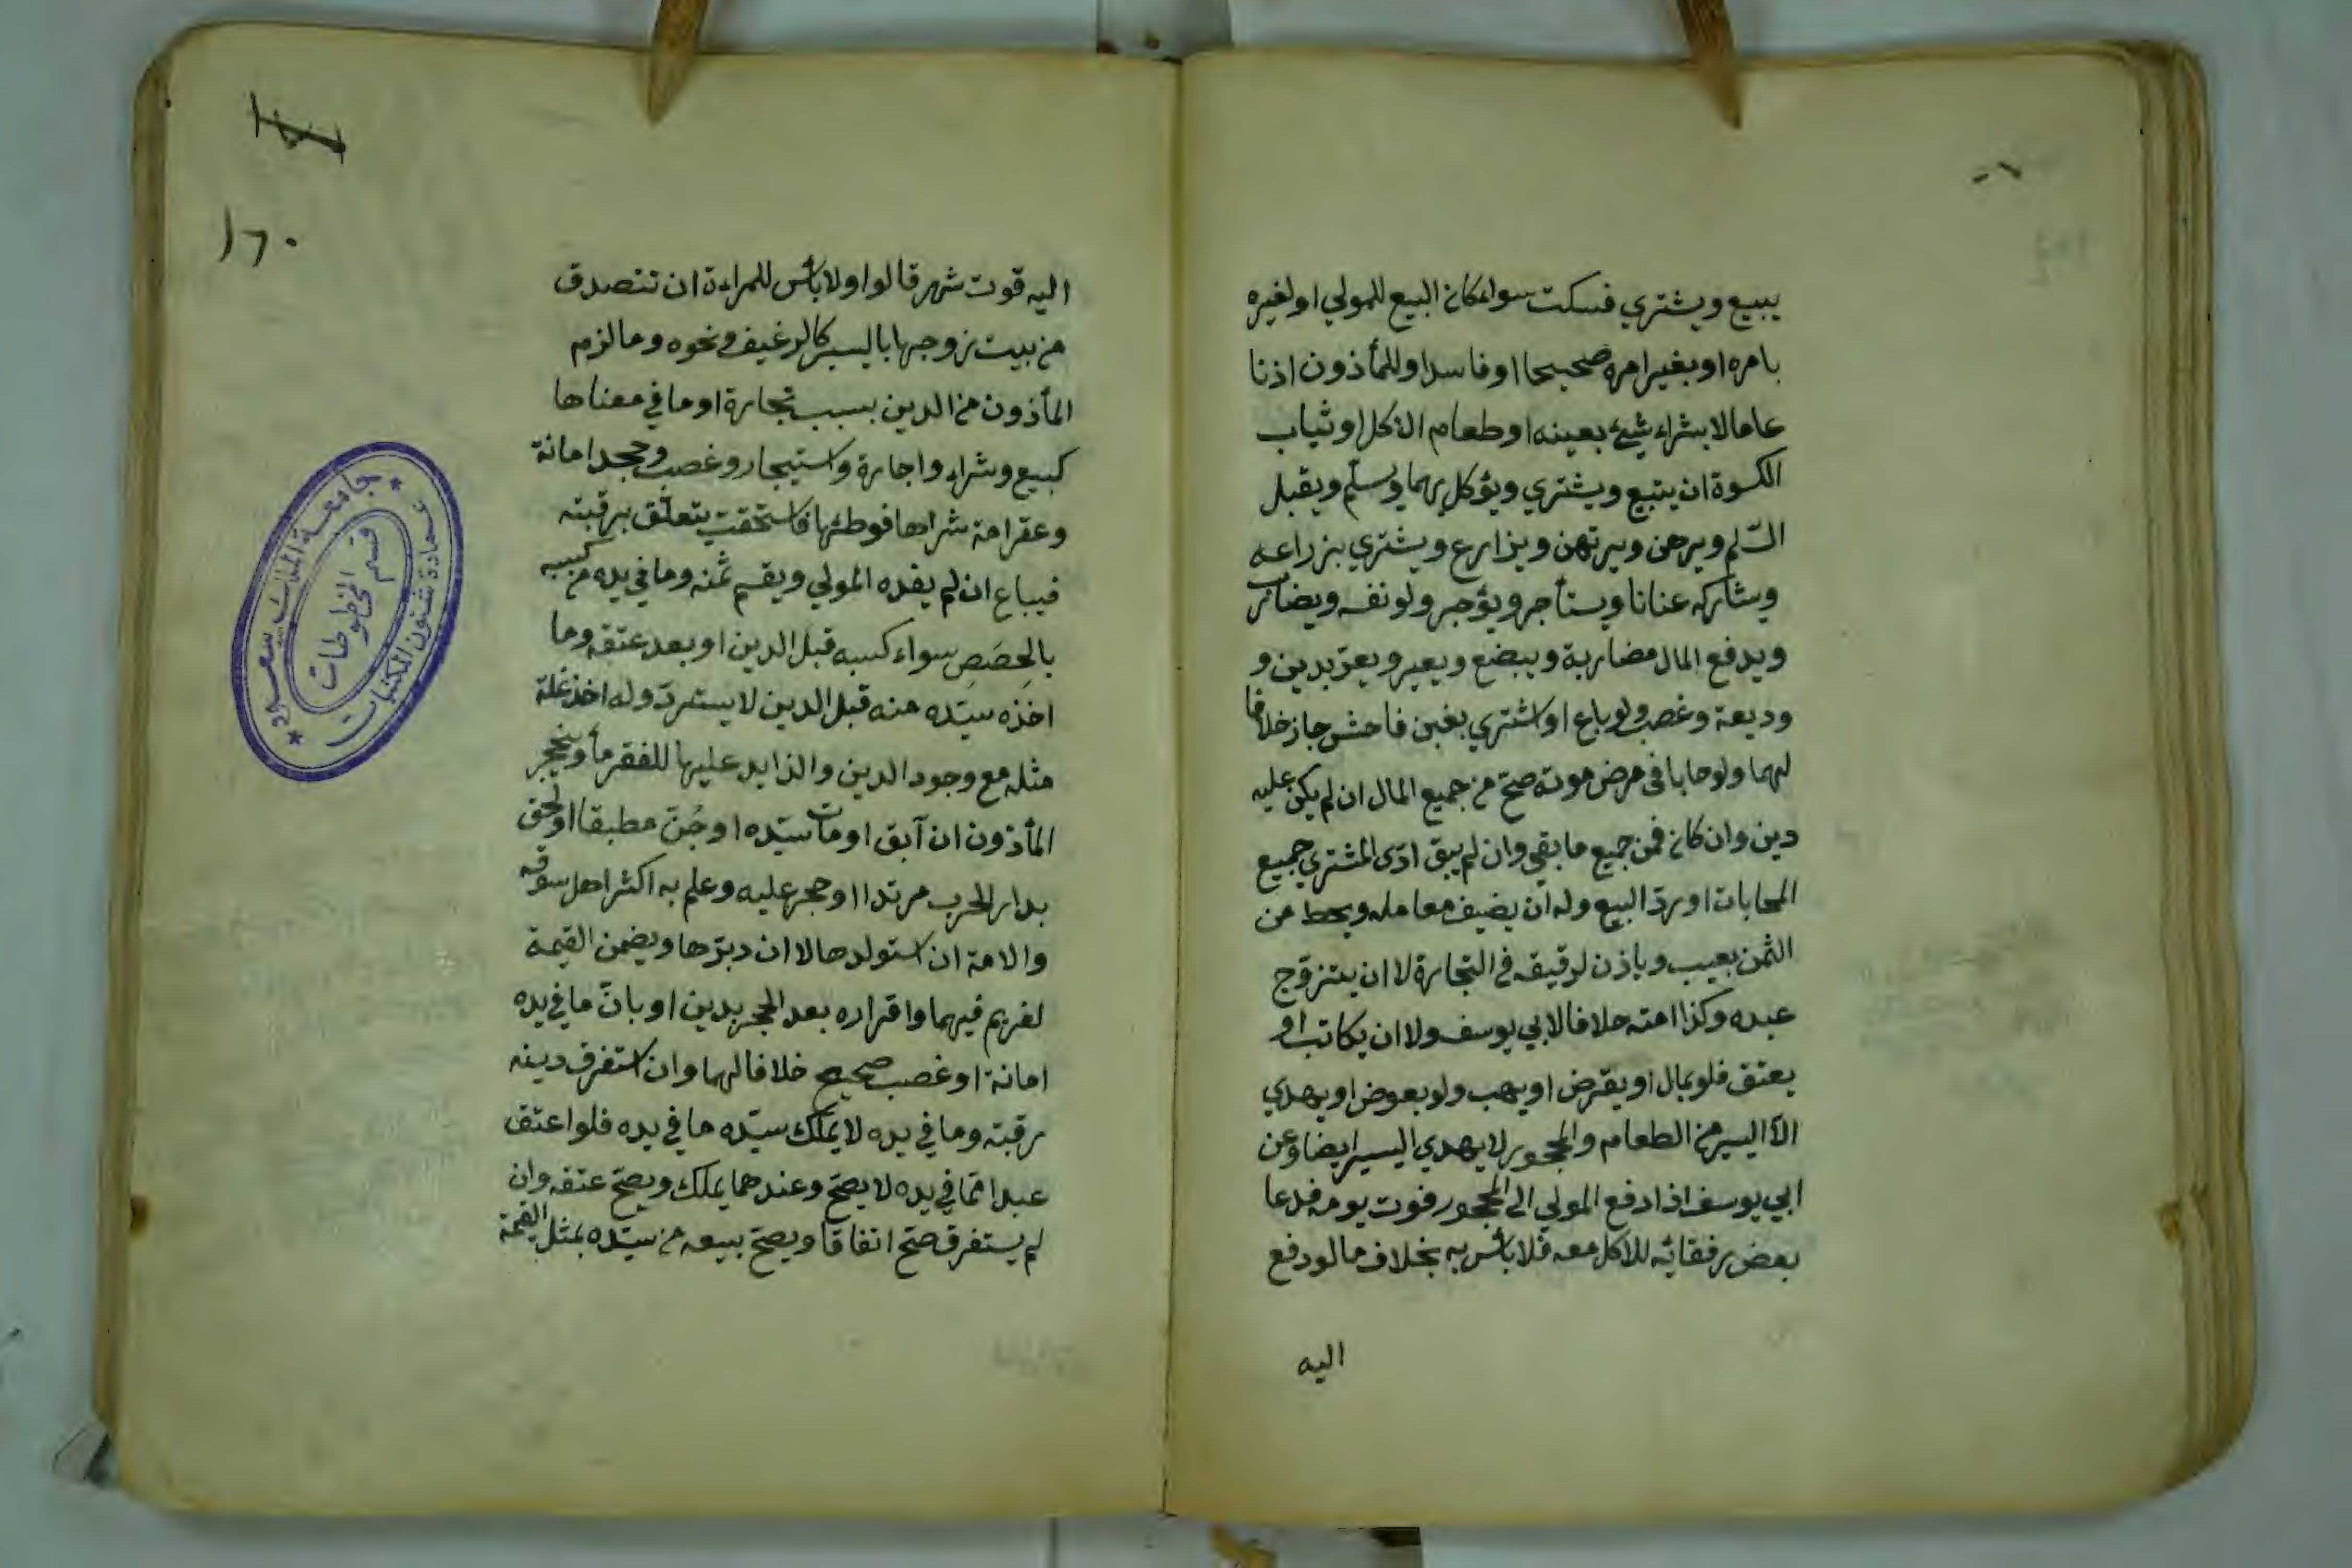 يبيع ويشتري فسكت سواء كان البيع للمولي او لغيره
بامره او بغير امره صحيحا او فاسدا وللمأذون اذنا
عاما لا بشراء شئ بعينه او طعام الاكل او ثياب
الكسوة ان يبيع ويشتري ويؤكل بهما ويسلم ويقبل
السّلم ويرهن ويرتهن ويزارع ويشتري بزراعه
ويشارك عنانا ويستأجر ويؤجر ولو نفسه ويضارب
ويدفع المال مضاربة ويبضع ويعير ويعرّ بدين و
وديعة وغصب ولو باع او اشتري بغبن فاحش جاز خلافا
لهما ولو حابا في مرض موته صحّ من جميع المال ان لم يكن عليه
دين وان كان فمن جميع ما بقي وان لم يبق ادّى المشتري جميع
المحابات او يردّ البيع وله ان يضيف معامله ويحط من
الثمن بعيب وياذن لرقيقه في التجارة لا ان يتزوج
عبده وكذا امته خلافا لابي يوسف ولا ان يكاتب او
يعتق فلو بمال او يقرض او يهب ولو بعوض او يهدي
الّا اليسير من الطعام والمحجور لا يهدي اليسير ايضا وعن
ابي يوسف اذا دفع المولي الى المحجور قوت يومه فدعا
بعض رفقائه للاكل معه فلا باس به بخلاف ما لو دفع
اليه
١٦٠
اليه قوت شهر قالوا ولا بأس للمراءة ان تتصدق
من بيت زوجها باليسير كالرغيف ونحوه وما لزم
المأذون من الدين بسبب تجارة او ما في معناها
كبيع وشراء واجارة واستيجار وغصب وجحد امانة
وعقر امة شراها فوطئها فاستحقت يتعلّق برقبته
فيباع ان لم يفده المولي ويقسم ثمنه وما في يده من كسبه
بالحِصَصِ سواء كسبه قبل الدين او بعد عتقه وما
اخذه سيّده منه قبل الدين لا يستردّ وله اخذ غلة
مثله مع وجود الدين والزايد عليها للغرماء وينحجر
المأذون ان آبق او مات سيّده او جُنّ مطبقا او لحق
بدار الحرب مرتدا او حجر عليه وعلم به اكثر اهل سوقه
والامة ان استولدها لا ان دبرّها ويضمن القيمة
لغريم فيهما واقراره بعد الحجر بدين او بانّ ما في يده
امانة او غصب صحيح خلافا لهما وان استغرق دينه
رقبته وما في يده لا يملك سيّده ما في يده فلو اعتق
عبدا ممّا في يده لا يصحّ وعندهما يملك ويصحّ عتقه وان
لم يستغرق صحّ اتفاقا ويصحّ بيعه من سيّده بمثل القيمة
جامعة الملك سعود
عمادة شئون المكتبات
قسم المخطوطات